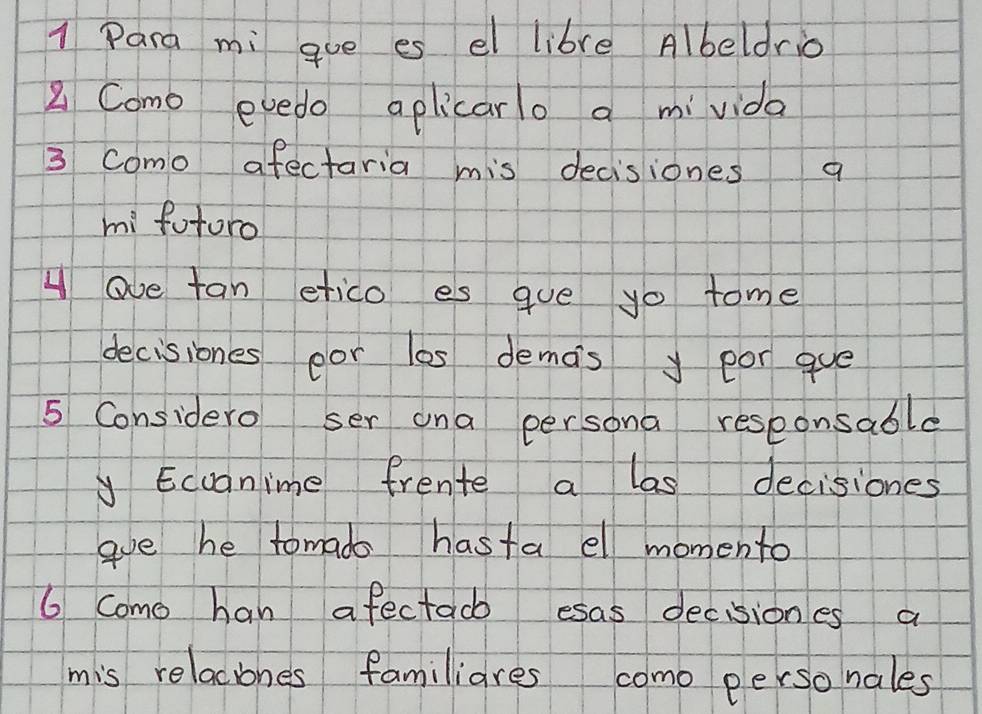 1 Para mi que es el libre Albeldrio
2 Como puedo aplicarlo a mi vida
3 Como afectaria mis decisiones a
mi futuro
4 Que tan etico es que yo tome
decisiones por los demás y por que
5 Considero ser una persona responsable
y Ecuanime frente a las decisiones
que he tomado hasta el momento
6 Como han afectado esas decisiones a
mis relaciones familiares como personales